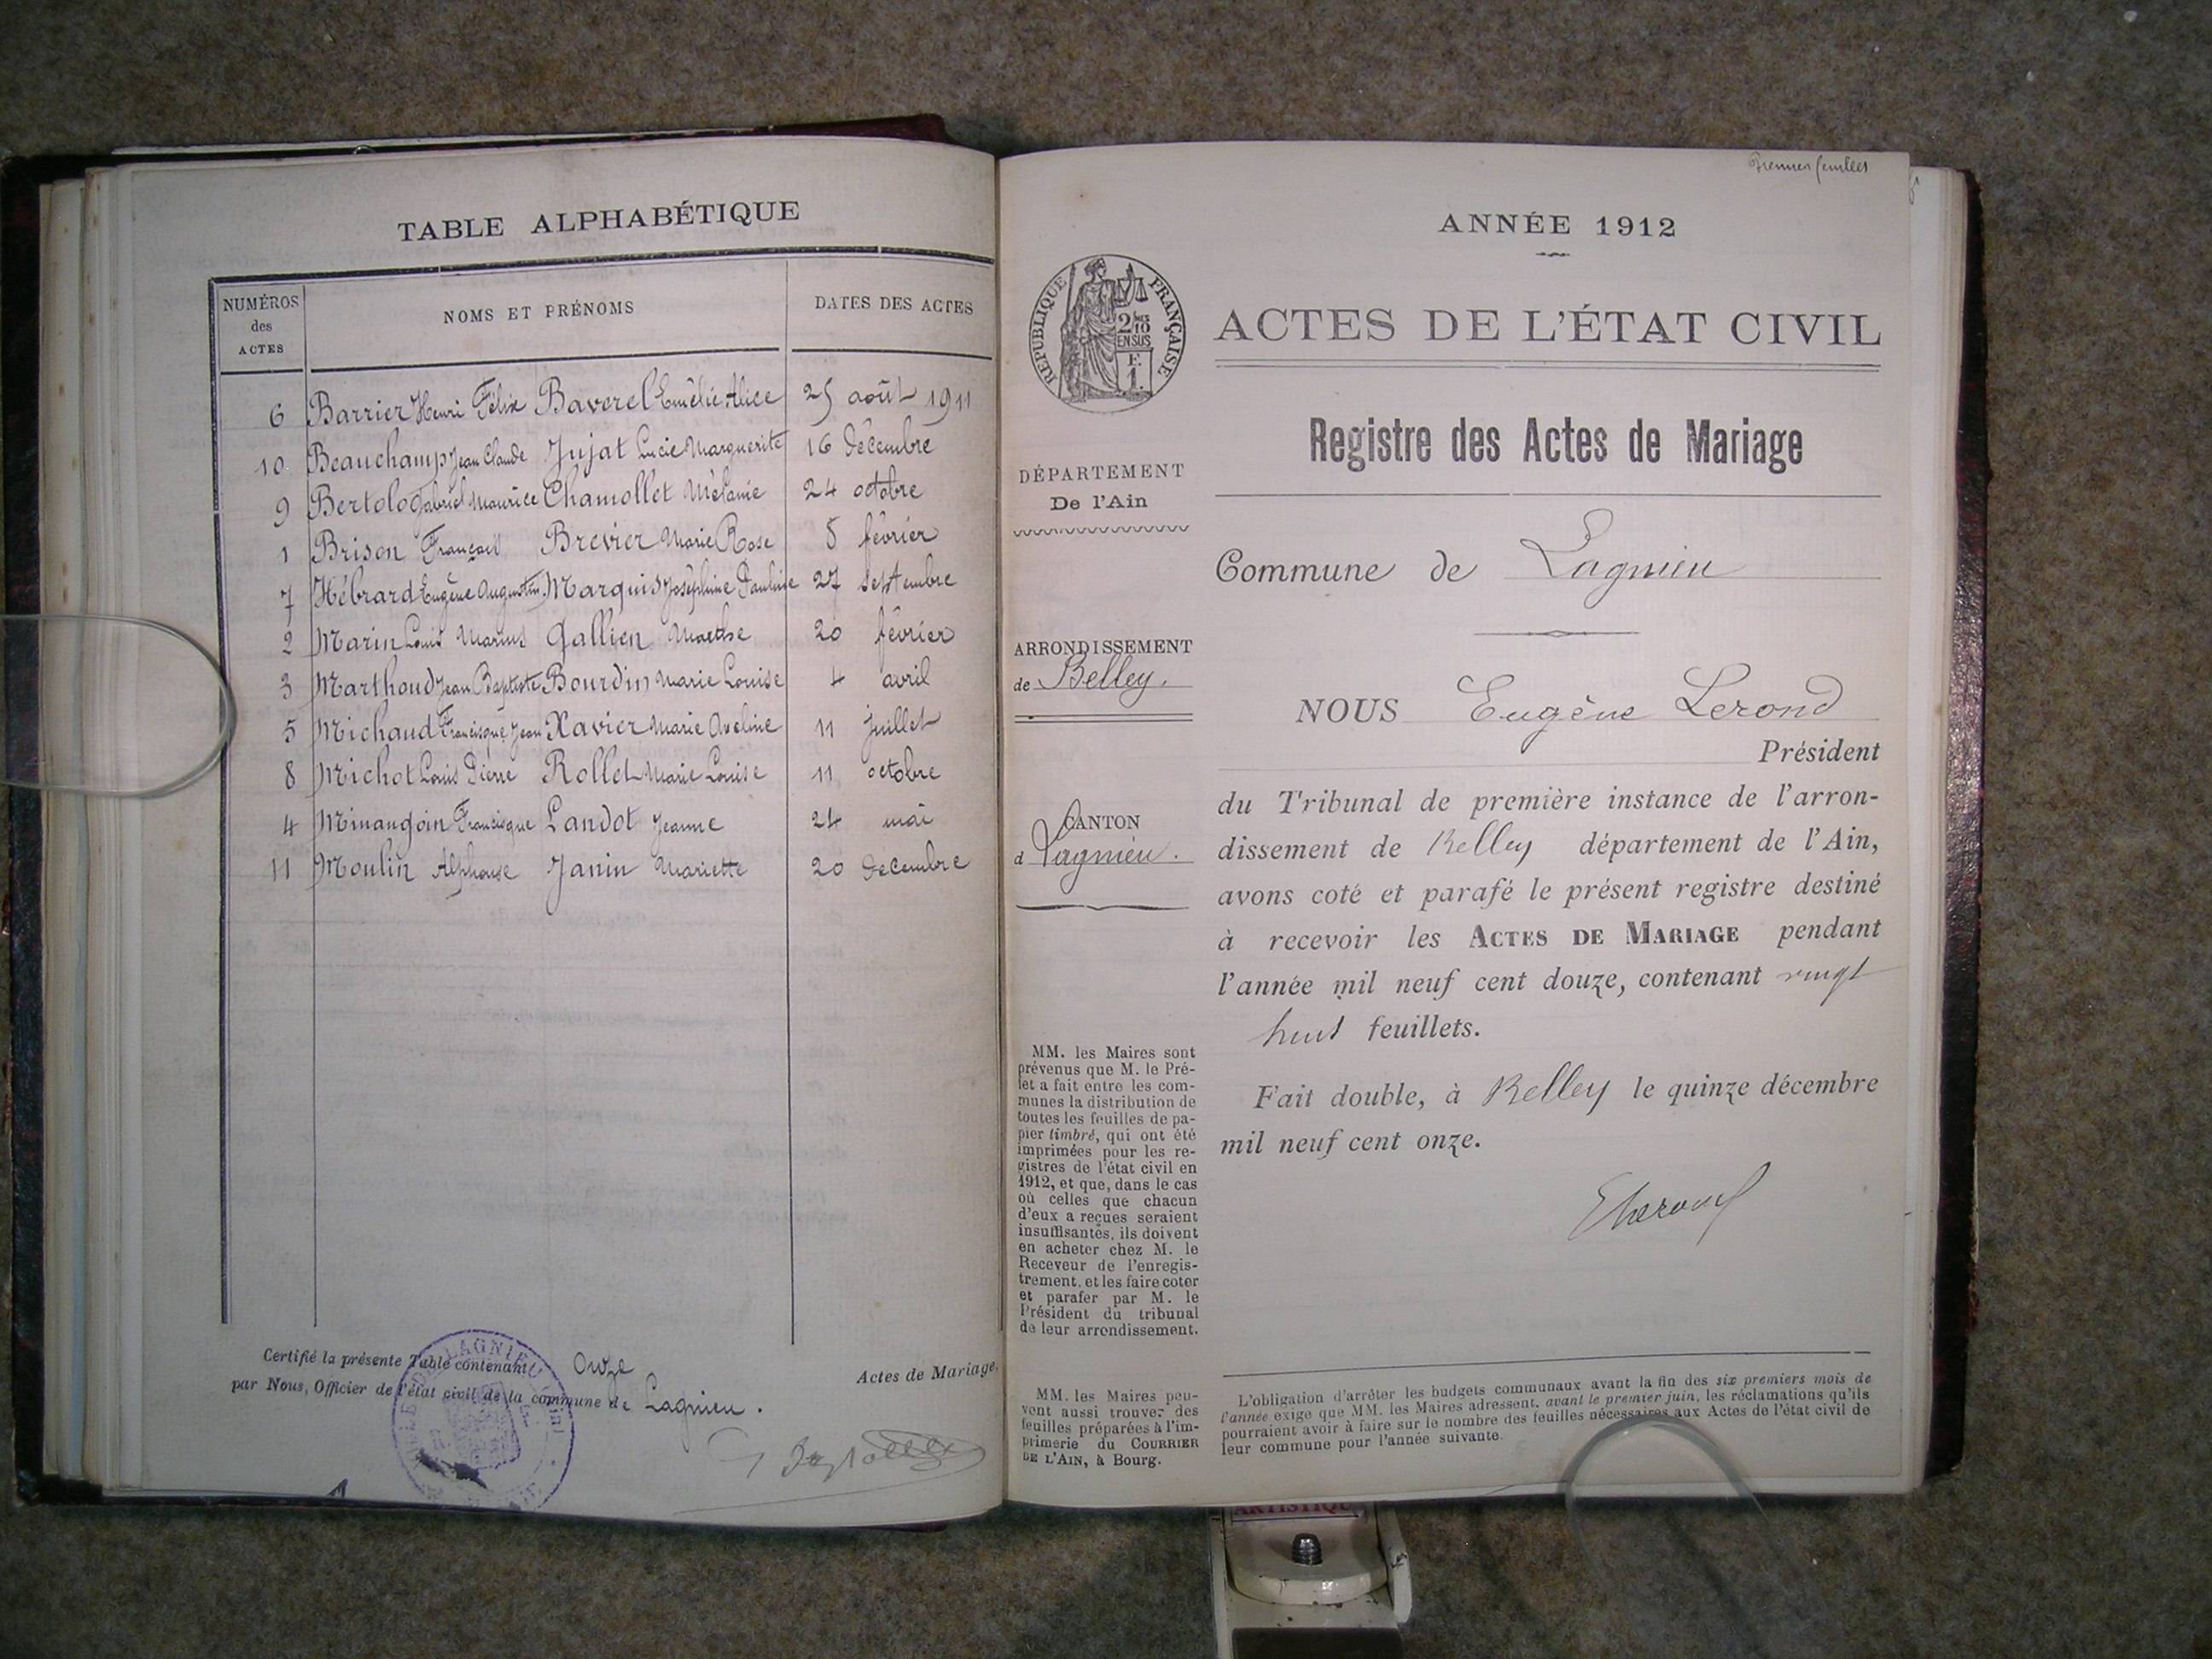 TABLE ALPHABÉTIQUE
NUMÉROS des ACTES
NOMS ET PRÉNOMS
DATES DES ACTES
6 Barrier Henri Félix Baverel Emélie Alice 25 août 1911
10 Beauchamp Jean Claude Jujat Lucie Marguerite 16 décembre
9 Bertolo Gabriel Maurice Chamollet Mélanie 24 octobre
1 Brison François Brevier Marie Rose 8 février
7 Hébrard Eugène Augustin Marquis Joséphine Pauline 27 septembre
2 Marin Louis Marius Gallien Marthe 20 février
3 Marthoud Jean Baptiste Bourdin Marie Louise 4 avril
5 Michaud Francisque Jean Xavier Marie Aveline 11 juillet
8 Michot Louis Pierre Rollet Marie Louise 11 octobre
4 Minangoin Francisque Landot Jeanne 24 mai
11 Moulin Alphonse Janin Mariette 20 décembre
Certifié la présente Table contenant Onze Actes de Mariage,
par Nous, Officier de l'état civil de la commune de Lagnieu.
LAGNIEU
ANNÉE 1912
RÉPUBLIQUE FRANÇAISE
EN SUS
ACTES DE L'ÉTAT CIVIL
Registre des Actes de Mariage
DÉPARTEMENT
De l'Ain
Commune de Lagnieu
ARRONDISSEMENT
de Belley.
NOUS Eugène Lerond
Président
du Tribunal de première instance de l'arron-
CANTON
d Lagnieu.
dissement de Belley département de l'Ain,
avons coté et parafé le présent registre destiné
à recevoir les ACTES DE MARIAGE pendant
l'année mil neuf cent douze, contenant vingt
huit feuillets.
Fait double, à Belley le quinze décembre
mil neuf cent onze.
MM. les Maires sont
prévenus que M. le Pré-
fet a fait entre les com-
munes la distribution de
toutes les feuilles de pa-
pier timbré, qui ont été
imprimées pour les re-
gistres de l'état civil en
1912, et que, dans le cas
où celles que chacun
d'eux a reçues seraient
insuffisantes, ils doivent
en acheter chez M. le
Receveur de l'enregis-
trement, et les faire coter
et parafer par M. le
Président du tribunal
de leur arrondissement.
MM. les Maires peu-
vent aussi trouver des
feuilles préparées à l'im-
primerie du COURRIER
DE L'AIN, à Bourg.
L'obligation d'arrêter les budgets communaux avant la fin des six premiers mois de
l'année exige que MM. les Maires adressent, avant le premier juin, les réclamations qu'ils
pourraient avoir à faire sur le nombre des feuilles nécessaires aux Actes de l'état civil de
leur commune pour l'année suivante.